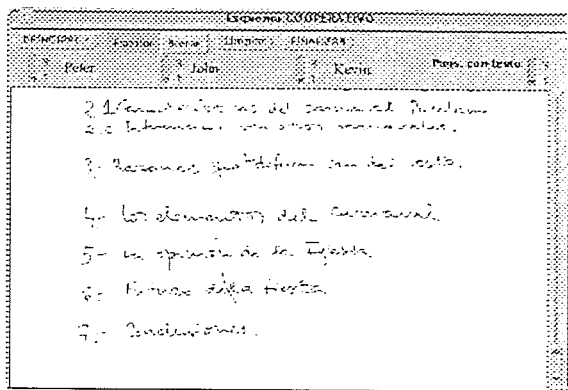 Esquema COOPERATIVO
PRINCIPAL Escribir Borrar Limpiar FINALIZAR
Peter John Kevin Pags. con texto
2.1 Características del carnaval
2.2 con otros carnavales.
3- Razones que diferencian del resto.
4- Los elementos del carnaval.
5- La opinión de la Iglesia.
6- Futuro de la fiesta.
7- Conclusiones.